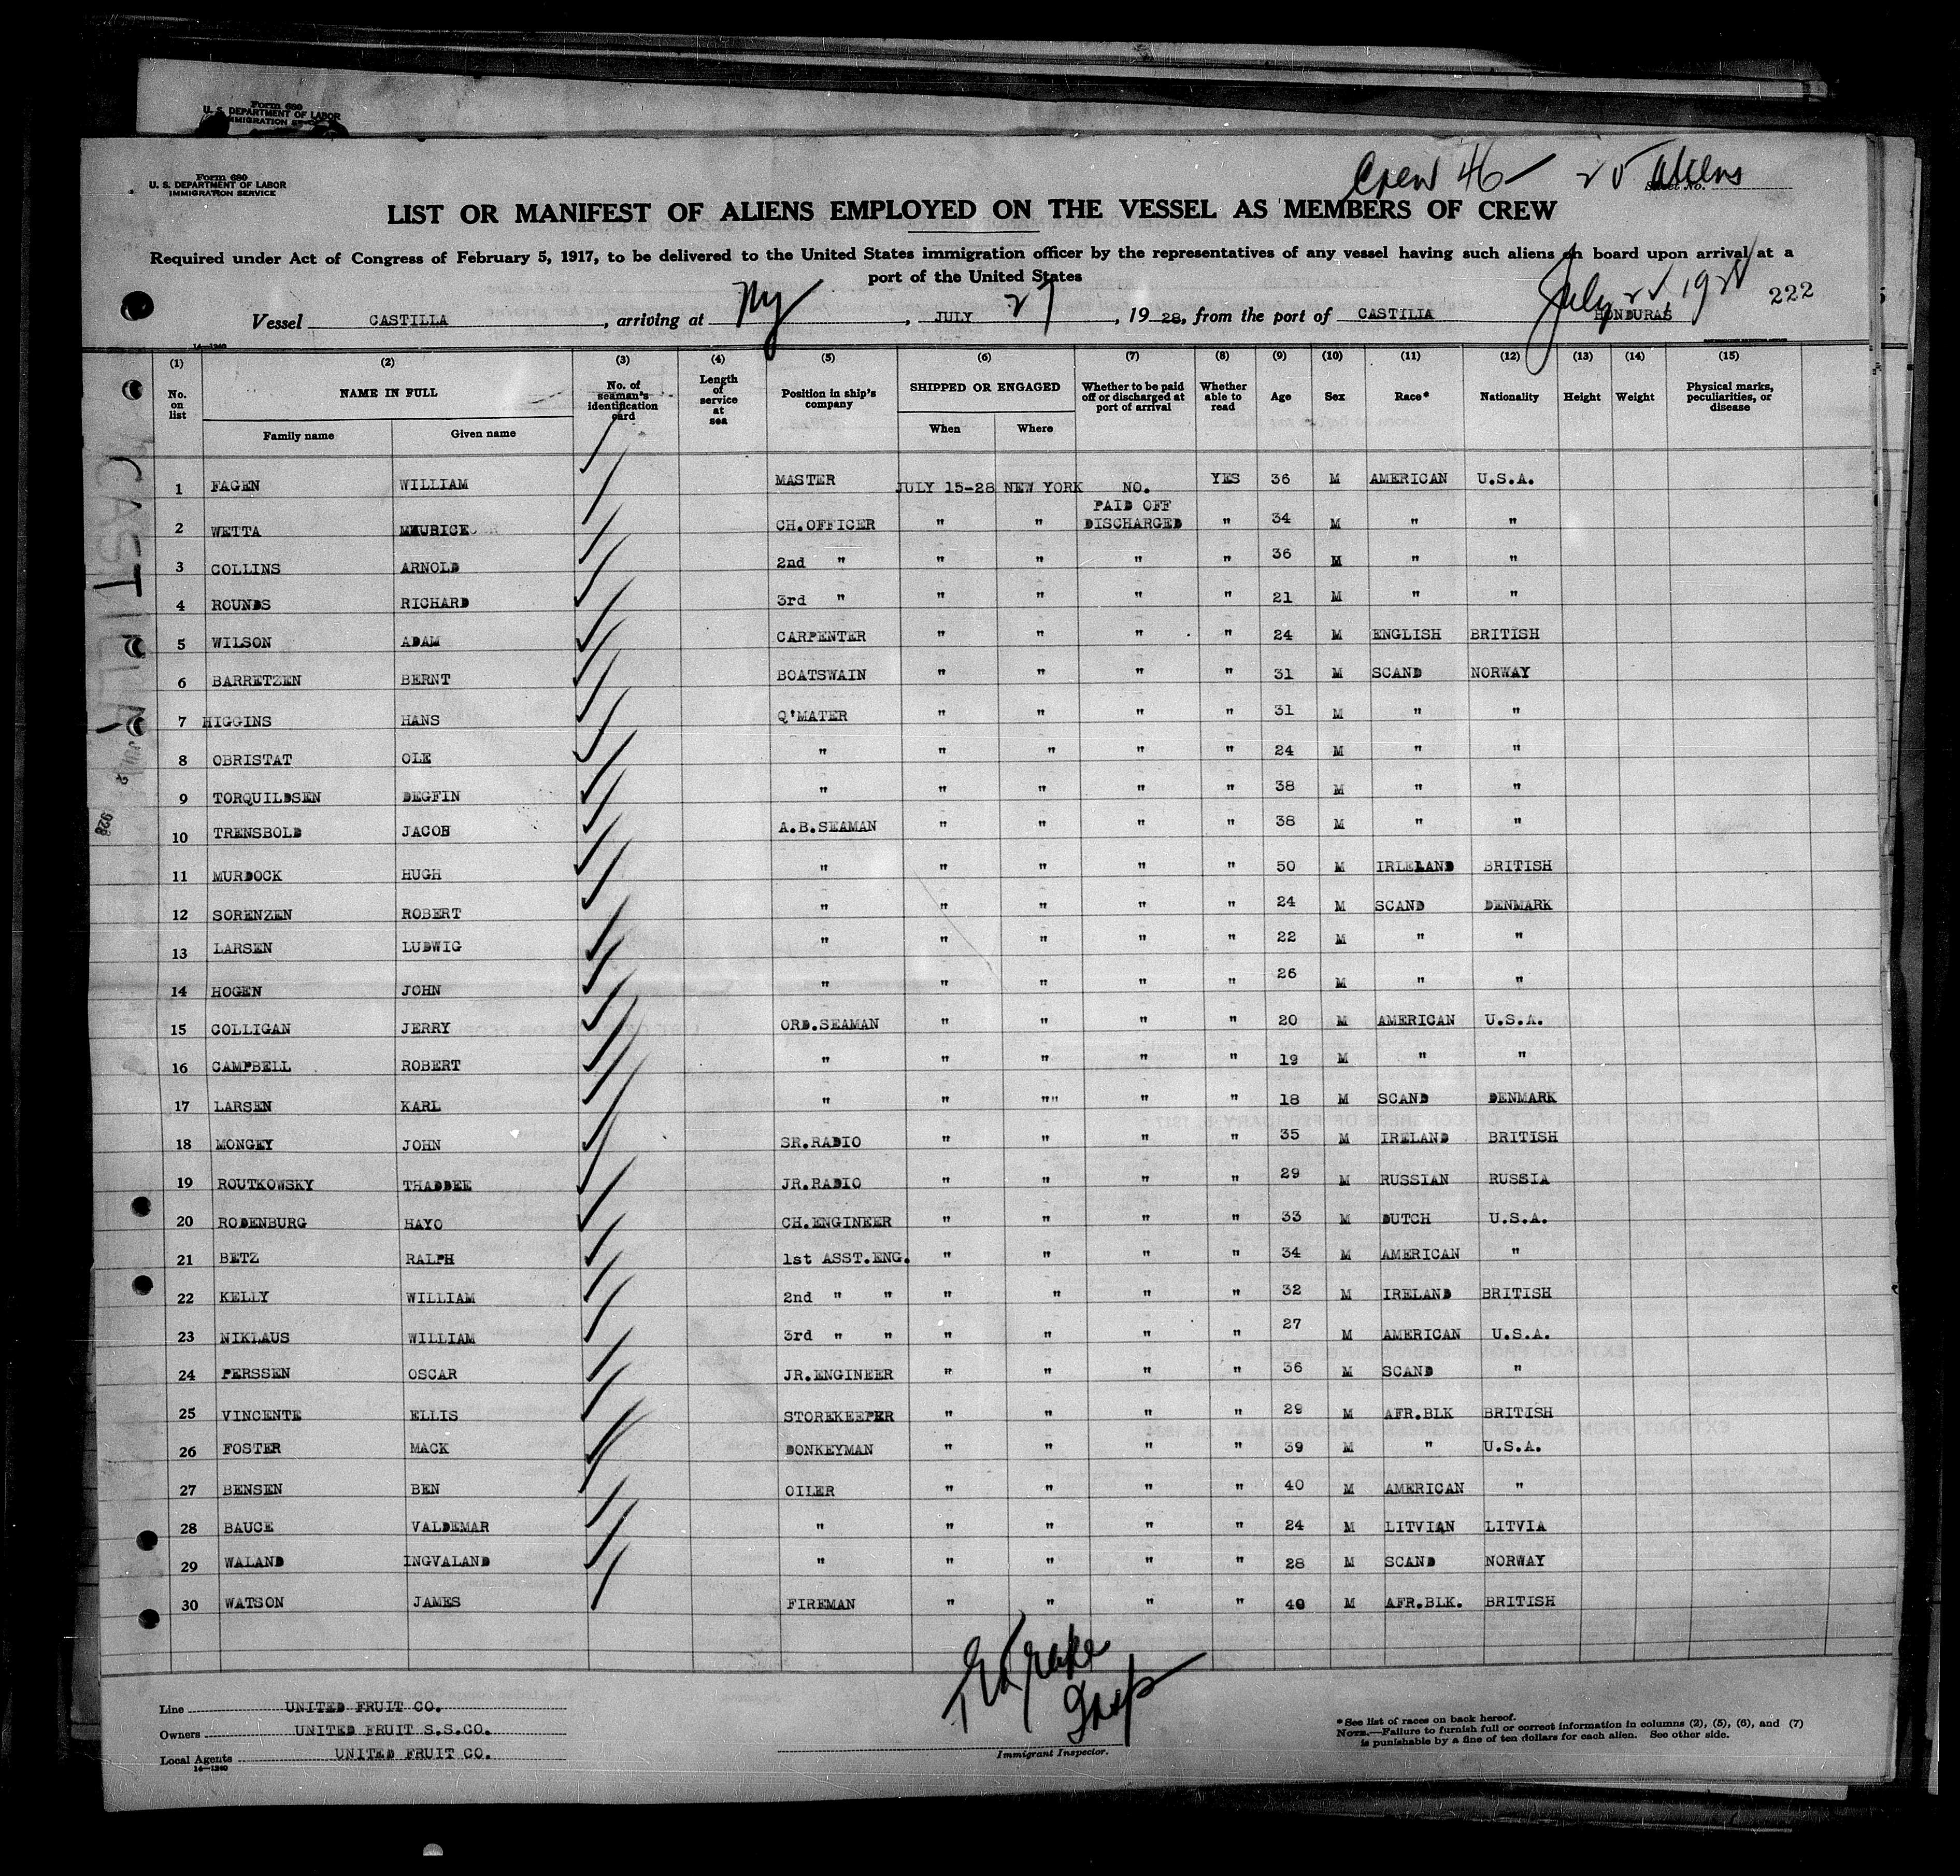 Form 680
U. S. DEPARTMENT OF LABOR
IMMIGRATION SERVICE
Form 680
U. S. DEPARTMENT OF LABOR
IMMIGRATION SERVICE
Crew 46 20 Aliens
Sheet No.
LIST OR MANIFEST OF ALIENS EMPLOYED ON THE VESSEL AS MEMBERS OF CREW
Required under Act of Congress of February 5, 1917, to be delivered to the United States immigration officer by the representatives of any vessel having such aliens on board upon arrival at a
port of the United States
July 22, 1928 222
Vessel CASTILLA, arriving at NY, JULY 27, 19 28, from the port of CASTILIA HONDURAS
14-1240
(1) (2) (3) (4) (5) (6) (7) (8) (9) (10) (11) (12) (13) (14) (15)
No. on list NAME IN FULL No. of seaman's identification card Length of service at sea Position in ship's company SHIPPED OR ENGAGED Whether to be paid off or discharged at port of arrival Whether able to read Age Sex Race* Nationality Height Weight Physical marks, peculiarities, or disease
Family name Given name When Where
1 FAGEN WILLIAM MASTER JULY 15-28 NEW YORK NO. YES 36 M AMERICAN U.S.A.
PAID OFF
2 WETTA MAURICE CH.OFFICER " " DISCHARGED " 34 M " "
3 COLLINS ARNOLD 2nd " " " " " 36 M " "
4 ROUNDS RICHARD 3rd " " " " " 21 M " "
5 WILSON ADAM CARPENTER " " " " 24 M ENGLISH BRITISH
6 BARRETZEN BERNT BOATSWAIN " " " " 31 M SCAND NORWAY
7 HIGGINS HANS Q'MATER " " " " 31 M " "
8 OBRISTAT OLE " " " " " 24 M " "
9 TORQUILDSEN DEGFIN " " " " " 38 M " "
10 TRENSBOLD JACOB A.B.SEAMAN " " " " 38 M " "
11 MURDOCK HUGH " " " " " 50 M IRLELAND BRITISH
12 SORENZEN ROBERT " " " " " 24 M SCAND DENMARK
13 LARSEN LUDWIG " " " " " 22 M " "
14 HOGEN JOHN " " " " " 26 M " "
15 COLLIGAN JERRY ORD.SEAMAN " " " " 20 M AMERICAN U.S.A.
16 CAMPBELL ROBERT " " " " " 19 M " "
17 LARSEN KARL " " "" " " 18 M SCAND DENMARK
18 MONGEY JOHN SR.RADIO " " " " 35 M IRELAND BRITISH
19 ROUTKOWSKY THADDEE JR.RADIO " " " " 29 M RUSSIAN RUSSIA
20 RODENBURG HAYO CH.ENGINEER " " " " 33 M DUTCH U.S.A.
21 BETZ RALPH 1st ASST.ENG. " " " " 34 M AMERICAN "
22 KELLY WILLIAM 2nd " " " " " " 32 M IRELAND BRITISH
23 NIKLAUS WILLIAM 3rd " " " " " " 27 M AMERICAN U.S.A.
24 PERSSEN OSCAR JR.ENGINEER " " " " 36 M SCAND "
25 VINCENTE ELLIS STOREKEEPER " " " " 29 M AFR.BLK BRITISH
26 FOSTER MACK DONKEYMAN " " " " 39 M " U.S.A.
27 BENSEN BEN OILER " " " " 40 M AMERICAN "
28 BAUCE VALDEMAR " " " " " 24 M LITVIAN LITVIA
29 WALAND INGVALAND " " " " " 28 M SCAND NORWAY
30 WATSON JAMES FIREMAN " " " " 40 M AFR.BLK. BRITISH
Line UNITED FRUIT CO.
Owners UNITED FRUIT S.S.CO.
Local Agents UNITED FRUIT CO.
14-1240
Insp
Immigrant Inspector.
* See list of races on back hereof.
NOTE.—Failure to furnish full or correct information in columns (2), (5), (6), and (7)
is punishable by a fine of ten dollars for each alien. See other side.
CASTILLA